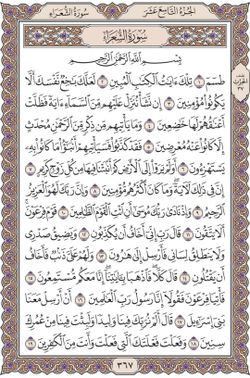 سُورَةُ الشُّعَرَاءِ الجُزْءُ التَّاسِعَ عَشَرَ
سُورَةُ الشُّعَرَاءِ
بِسْمِ اللَّهِ الرَّحْمَٰنِ الرَّحِيمِ
طسٓمٓ ١ تِلْكَ ءَايَٰتُ ٱلْكِتَٰبِ ٱلْمُبِينِ ٢ لَعَلَّكَ بَٰخِعٌ نَّفْسَكَ أَلَّا
يَكُونُوا۟ مُؤْمِنِينَ ٣ إِن نَّشَأْ نُنَزِّلْ عَلَيْهِم مِّنَ ٱلسَّمَآءِ ءَايَةً فَظَلَّتْ
أَعْنَٰقُهُمْ لَهَا خَٰضِعِينَ ٤ وَمَا يَأْتِيهِم مِّن ذِكْرٍ مِّنَ ٱلرَّحْمَٰنِ مُحْدَثٍ
إِلَّا كَانُوا۟ عَنْهُ مُعْرِضِينَ ٥ فَقَدْ كَذَّبُوا۟ فَسَيَأْتِيهِمْ أَنۢبَٰٓؤُا۟ مَا كَانُوا۟ بِهِۦ
يَسْتَهْزِءُونَ ٦ أَوَلَمْ يَرَوْا۟ إِلَى ٱلْأَرْضِ كَمْ أَنۢبَتْنَا فِيهَا مِن كُلِّ زَوْجٍ كَرِيمٍ ٧
إِنَّ فِى ذَٰلِكَ لَءَايَةً وَمَا كَانَ أَكْثَرُهُم مُّؤْمِنِينَ ٨ وَإِنَّ رَبَّكَ لَهُوَ ٱلْعَزِيزُ
ٱلرَّحِيمُ ٩ وَإِذْ نَادَىٰ رَبُّكَ مُوسَىٰٓ أَنِ ٱئْتِ ٱلْقَوْمَ ٱلظَّٰلِمِينَ ١٠ قَوْمَ فِرْعَوْنَ
أَلَا يَتَّقُونَ ١١ قَالَ رَبِّ إِنِّىٓ أَخَافُ أَن يُكَذِّبُونِ ١٢ وَيَضِيقُ صَدْرِى
وَلَا يَنطَلِقُ لِسَانِى فَأَرْسِلْ إِلَىٰ هَٰرُونَ ١٣ وَلَهُمْ عَلَىَّ ذَنۢبٌ فَأَخَافُ
أَن يَقْتُلُونِ ١٤ قَالَ كَلَّا فَٱذْهَبَا بِـَٔايَٰتِنَآ إِنَّا مَعَكُم مُّسْتَمِعُونَ ١٥
فَأْتِيَا فِرْعَوْنَ فَقُولَآ إِنَّا رَسُولُ رَبِّ ٱلْعَٰلَمِينَ ١٦ أَنْ أَرْسِلْ مَعَنَا
بَنِىٓ إِسْرَٰٓءِيلَ ١٧ قَالَ أَلَمْ نُرَبِّكَ فِينَا وَلِيدًا وَلَبِثْتَ فِينَا مِنْ عُمُرِكَ
سِنِينَ ١٨ وَفَعَلْتَ فَعْلَتَكَ ٱلَّتِى فَعَلْتَ وَأَنتَ مِنَ ٱلْكَٰفِرِينَ ١٩
٣٦٧